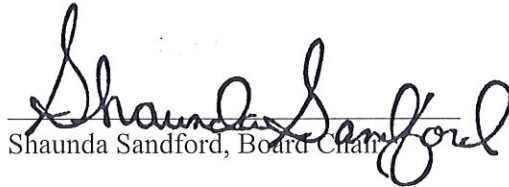 Shaunda Sandford
Shaunda Sandford, Board Chair